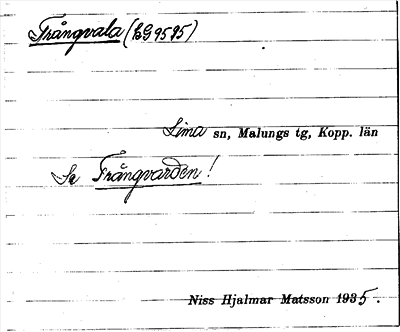 Trångvala (EG 9595)
Lima sn, Malungs tg, Kopp. län
Se Trångvarden!
Niss Hjalmar Matsson 1935.